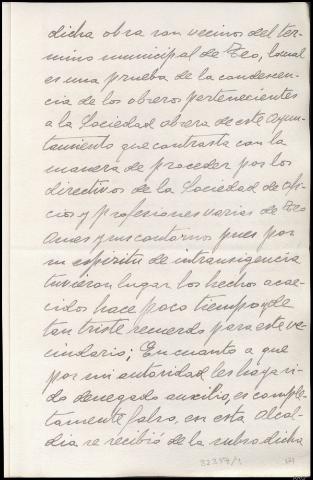 dicha obra son vecinos del ter-
mino municipal de Teo, lo cual
es una prueba de la condescen-
cia de los obreros pertenecientes
a la Sociedad obrera de este Ayun-
tamiento que contrasta con la
manera de proceder por los
directivos de la Sociedad de ofi-
cios y profesiones varias de Teo
Ames y sus contornos pues por
su espiritu de intransigencia
tuvieron lugar los hechos acae-
cidos hace poco tiempo y de
tan triste recuerdo para este ve-
cindario; En cuanto a que
por mi autoridad les haya si-
do denegado auxilio, es comple-
tamente falso, en esta Alcal-
dia se recibió de la subsodicha
32357/1